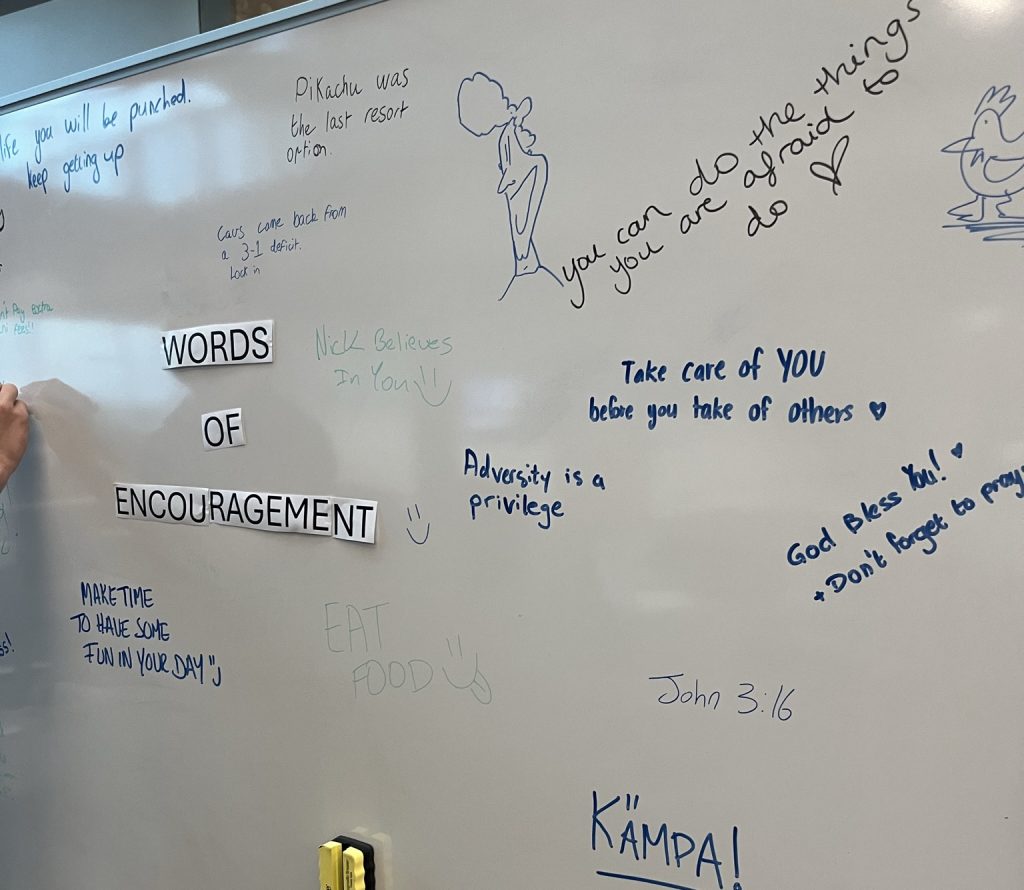 life you will be punched.
keep getting up
Pikachu was
the last resort
option.
Cavs came back from
a 3-1 deficit.
Lock in
you can do the things
you are afraid to
do ♡
WORDS
OF
ENCOURAGEMENT
Nick Believes
In You
Take care of YOU
before you take of others ♥
Adversity is a
privilege
God Bless You! ♥
+Don't forget to pray
MAKE TIME
TO HAVE SOME
FUN IN YOUR DAY
EAT
FOOD
John 3:16
KÄMPA!
Pay extra
fees!!